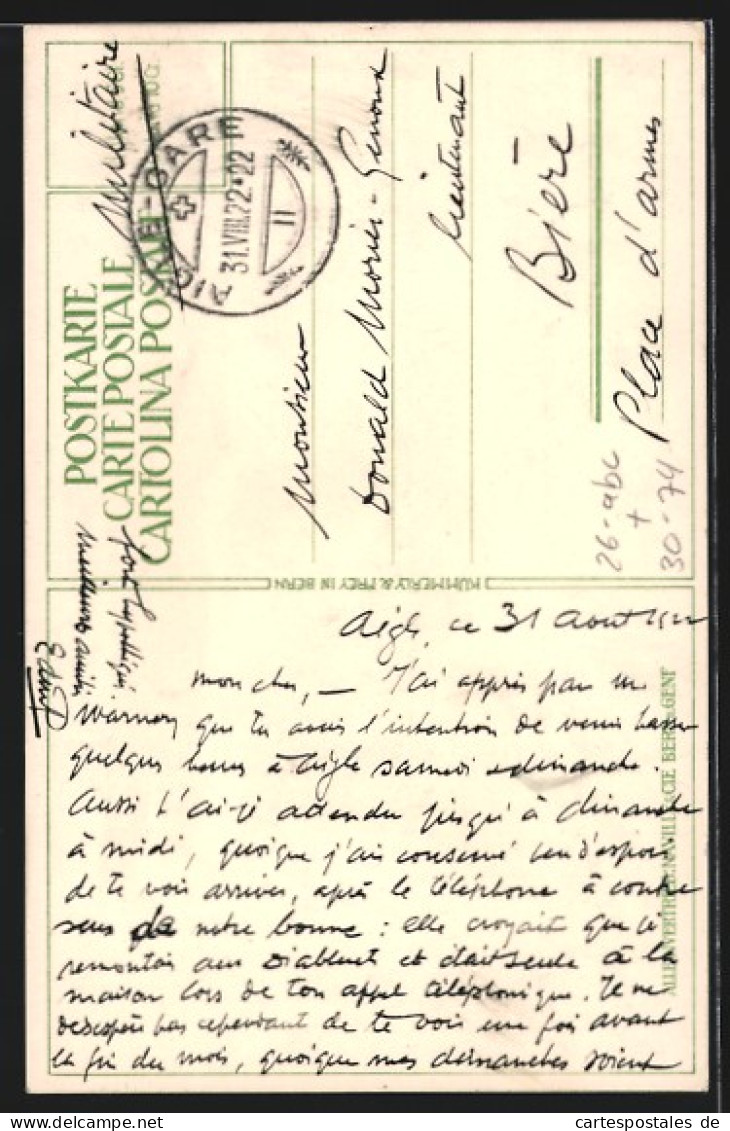 POSTKARTE
CARTE POSTALE
CARTOLINA POSTALE
militaire
AIGLE-GARE
31.VIII.22-22
II
Monsieur
Donald Morier-Genoud
lieutenant
Bière
Place d'armes
26-abc
+
30-74
KÜMMERLY & FREY IN BERN
Aigle, ce 31 Août 1922
Mon cher, — J'ai appris par un
Warnery que tu avais l'intention de venir passer
quelques heures à Aigle samedi & dimanche.
Aussi t'ai-je attendu jusqu'à dimanche
à midi, quoique j'aie conservé peu d'espoir
de te voir arriver, après le téléphone à contre
sens de notre bonne : elle croyait que je
remontais aux Diablerets et était seule à la
maison lors de ton appel téléphonique. Je ne
désespère pas cependant de te voir une fois avant
la fin du mois, quoique mes dimanches soient
meilleures amitiés
cartespostales de